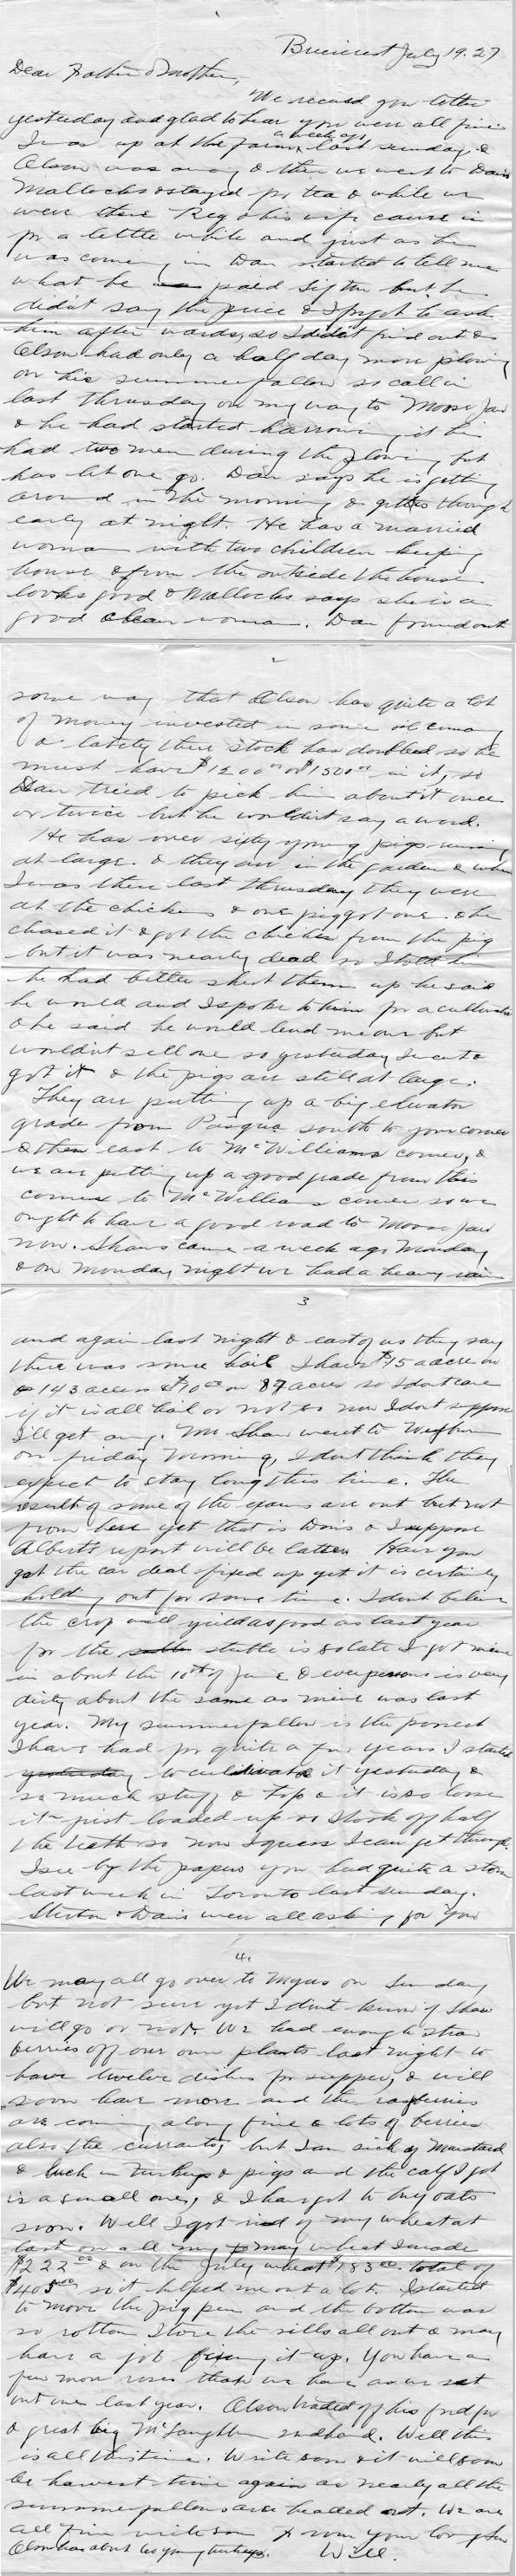 Briercrest July 19.27
Dear Father & Mother,
We received your letter
yesterday and glad to hear you were all fine
I was up at the farm a week ago last Sunday, &
Olson was away & then we went to Dan
Mallochs & stayed for tea & while we
were there Reg & his wife came in
for a little while and just as he
was coming in Dan started to tell me
what he paid but he
didn't say the price & I forgot to ask
him after wards, so I didn't find out &
Olson had only a half day more plowing
on his summerfallow so call in
last Thursday on my way to Moose Jaw
& he had started harrowing it he
had two men during the plowing but
has let one go. Dan says he is getting
around in the morning & gets through
early at night. He has a married
woman with two children keeping
house & from the outside the house
looks good & Mallochs says she is a
good clean woman. Dan found out
2
some way that Olson has quite a lot
of money invested in some oil company
& lately there stock has doubled so he
must have $1200.00 or $1500.00 in it, so
Dan tried to pick him about it once
or twice but he wouldn't say a word.
He has over sixty young pigs running
at large. & they are in the garden & when
I was there last Thursday they were
at the chickens & one pig got one. & he
chased it & got the chicken from the pig
but it was nearly dead so I told him
he had better shut them up he said
he would and I spoke to him for a cultivator
& he said he would lend me one but
wouldn't sell one so yesterday I went &
got it & the pigs are still at large.
They are putting up a big elevator
grade from Pasqua south to your corner
& then east to McWilliams corner, &
we are putting up a good grade from this
corner to McWilliams corner so we
ought to have a good road to Moose Jaw
now. Shaws came a week ago Monday
& on Monday night we had a heavy rain
3
and again last night & east of us they say
there was some hail I have $15 a acre on
143 acres & $10.00 on 87 acres so I dont care
if it is all hail or not so now I dont suppose
I'll get any. Mr Shaw went to Weyburn
on Friday morning, I dont think they
expect to stay long this time. The
result of some of the exams are out but not
from here yet that is Doris & I suppose
Alberts report will be later. Have you
got the car deal fixed up yet it is certainly
holding out for some time. I dont believe
the crop will yield as good as last year
for the stubble is so late I got mine
in about the 10th of June & everyones is very
dirty about the same as mine was last
year. My summerfallow is the poorest
I have had for quite a few years I started
yesterday to cultivate it yesterday &
so much stuff & top & it is so loose
it just loaded up so I took off half
the teeth so now I guess I can get through.
I see by the papers you had quite a storm
last week in Toronto last Sunday.
& Dans were all asking for you
4.
We may all go over to on Sunday
but not sure yet I dont know if Shaw
will go or not. We had enough straw
berries off our own plants last night to
have twelve dishes for supper, & will
soon have more and the raspberries
are coming along fine & lots of berries
also the currants, but I am sick of Mustard
& luck in turkeys & pigs and the calf I got
is a small one, & I have got to buy oats
soon. Well I got rid of my wheat at
last on all my May wheat I made
$222.00 & on the July wheat $183.00 total of
$405.00 so it helped me out a lot. I started
to move the pig pen and the bottom was
so rotten I tore the sills all out & may
have a job fixing it up. You have a
few more roses than we have as we set
out ours last year. Olson traded off his ford for
a great big McLaughlin second hand. Well this
is all this time. Write soon & it will soon
be harvest time again as nearly all the
summerfallows are headed out. We are
all fine write soon From your loving Son
Olson has about young turkeys. Will.